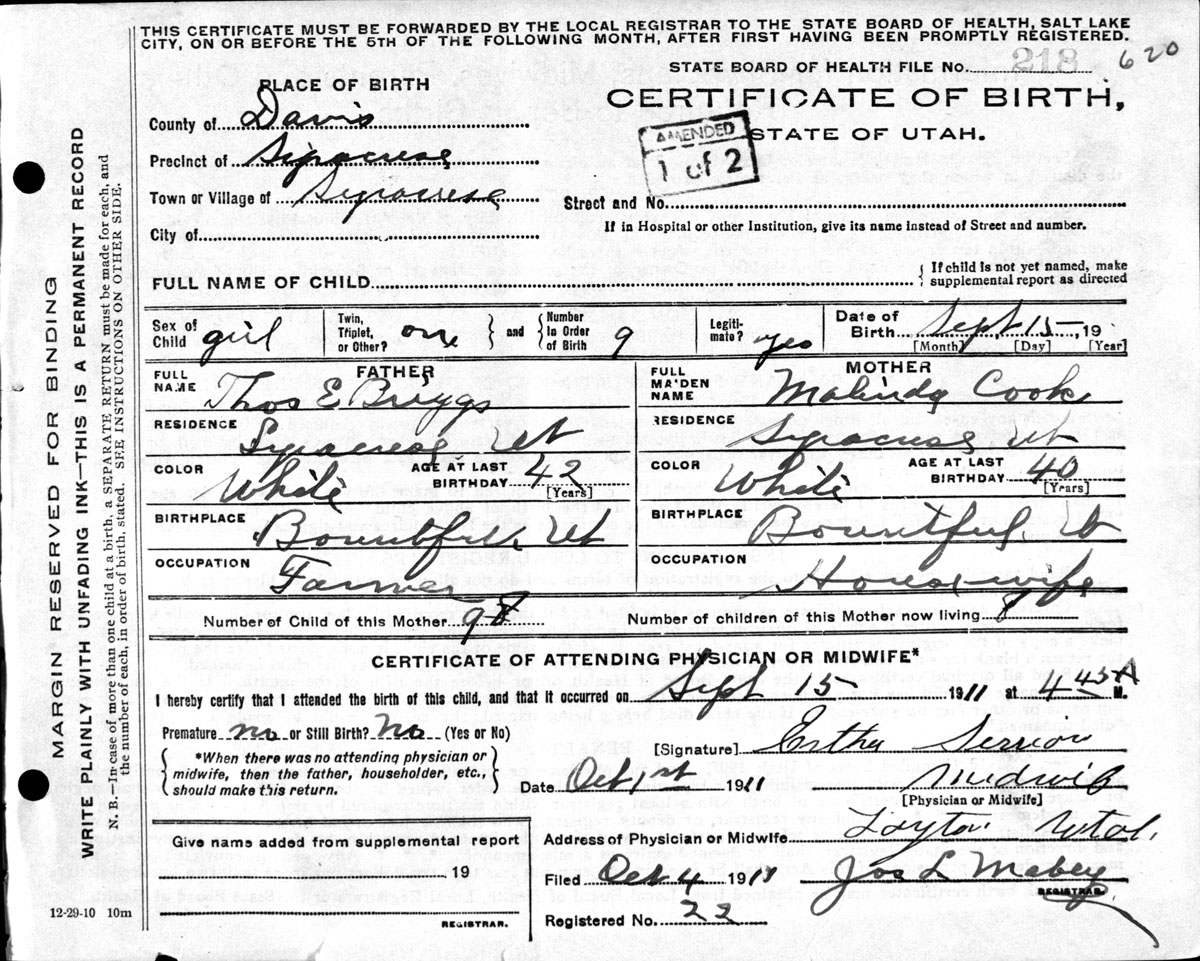 THIS CERTIFICATE MUST BE FORWARDED BY THE LOCAL REGISTRAR TO THE STATE BOARD OF HEALTH, SALT LAKE
CITY, ON OR BEFORE THE 5TH OF THE FOLLOWING MONTH, AFTER FIRST HAVING BEEN PROMPTLY REGISTERED.
STATE BOARD OF HEALTH FILE No. 218 620
PLACE OF BIRTH
CERTIFICATE OF BIRTH,
STATE OF UTAH.
AMENDED
1 of 2
County of Davis
Precinct of Syracuse
Town or Village of Syracuse
City of
Street and No.
If in Hospital or other Institution, give its name instead of Street and number.
FULL NAME OF CHILD
If child is not yet named, make
supplemental report as directed
Sex of Child girl Twin, Triplet, or Other? one and Number in Order of Birth 9 Legitimate? yes Date of Birth Sept 15 19
[Month] [Day] [Year]
FATHER
FULL NAME Thos E Briggs
RESIDENCE Syracuse Ut
COLOR White AGE AT LAST BIRTHDAY 42
[Years]
BIRTHPLACE Bountiful, Ut
OCCUPATION Farmer
MOTHER
FULL MAIDEN NAME Malinda Cook
RESIDENCE Syracuse, Ut
COLOR White AGE AT LAST BIRTHDAY 40
[Years]
BIRTHPLACE Bountiful, Ut
OCCUPATION House wife
Number of Child of this Mother 9 8 Number of children of this Mother now living 8
CERTIFICATE OF ATTENDING PHYSICIAN OR MIDWIFE*
I hereby certify that I attended the birth of this child, and that it occurred on Sept 15 1911 at 4 45 A M.
Premature no or Still Birth? No (Yes or No)
*When there was no attending physician or
midwife, then the father, householder, etc.,
should make this return.
[Signature]
Date Oct 1st 1911 Midwife
[Physician or Midwife]
Give name added from supplemental report
19
REGISTRAR.
Address of Physician or Midwife Layton Utah.
Filed Oct 4 1911 Jos L Mabey
REGISTRAR.
Registered No. 22
12-29-10 10m
MARGIN RESERVED FOR BINDING
WRITE PLAINLY WITH UNFADING INK—THIS IS A PERMANENT RECORD
N. B.—In case of more than one child at a birth, a SEPARATE RETURN must be made for each, and
the number of each, in order of birth, stated. SEE INSTRUCTIONS ON OTHER SIDE.